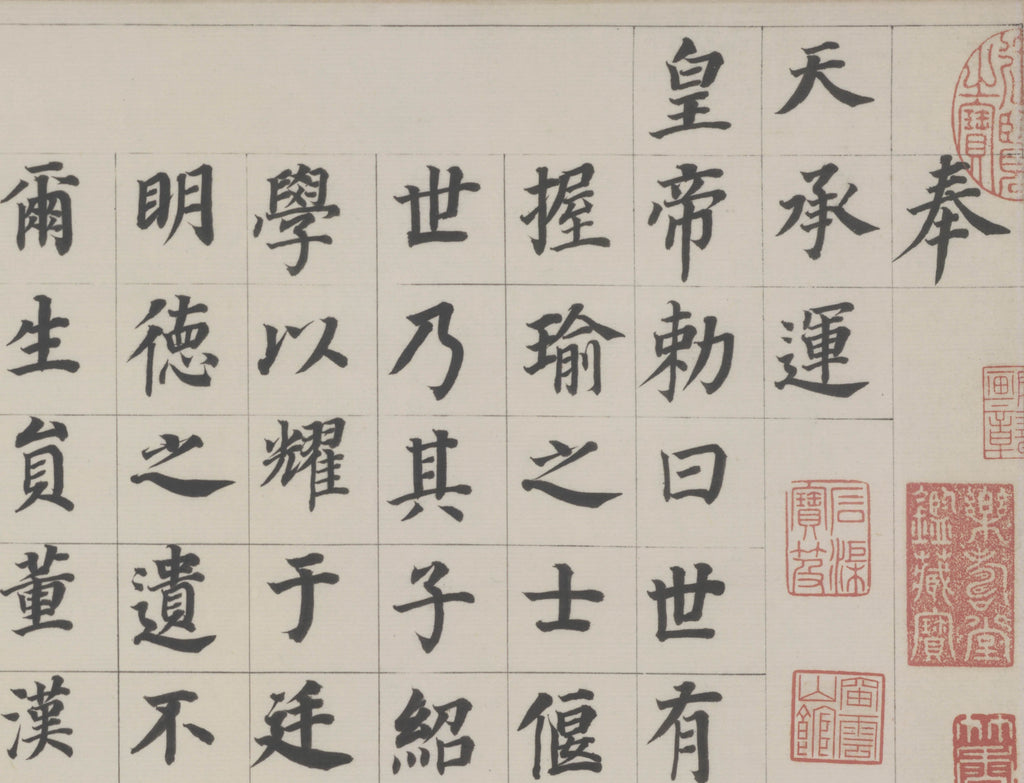 奉
天承運
皇帝勅曰世有
握瑜之士偃
世乃其子紹
學以耀于廷
明德之遺不
爾生員董漢
樂壽堂鑑藏寶